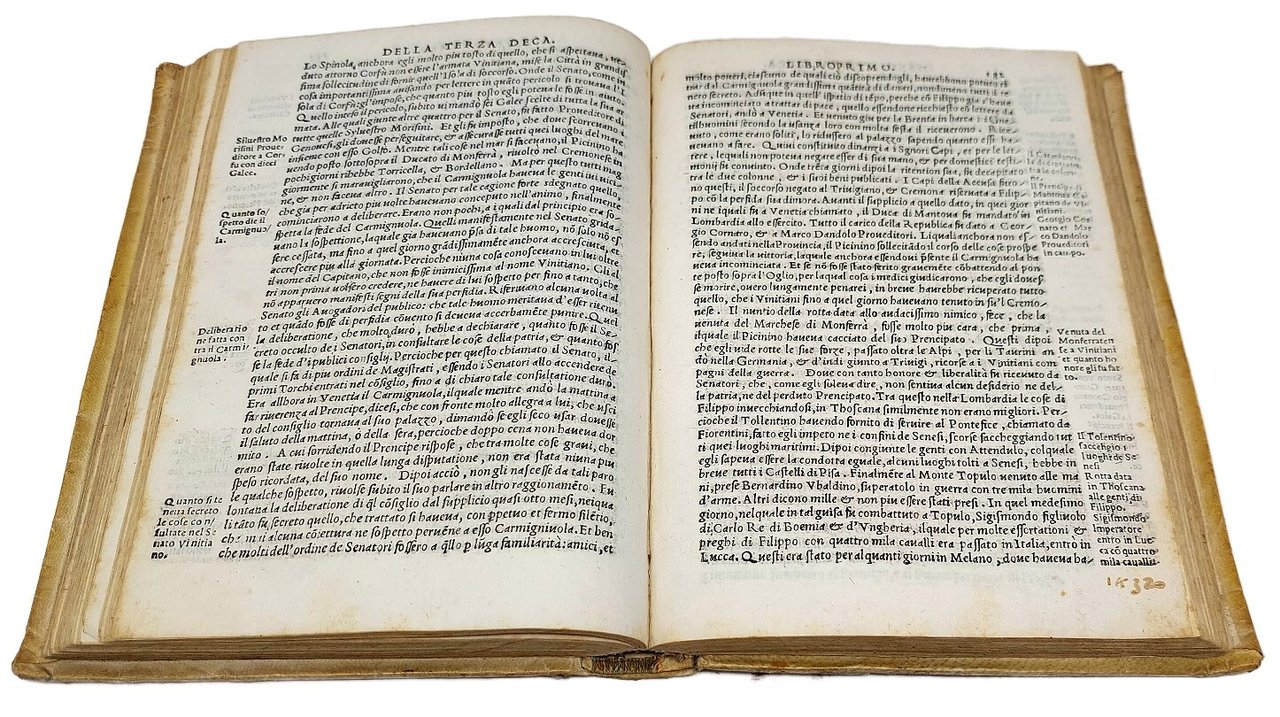 DELLA TERZA DECA.
Lo Spinola, anchora egli molto piu toſto di quello, che ſi aſpettaua, ve-
duto attorno Corfù non eſſere l'armata Vinitiana, miſe la Città in grandiſ-
ſima ſollecitudine di fornir quell'Iſola di ſoccorſo. Onde il Senato, come in
coſa importantiſſima auiſando per lettere in quãto pericolo ſi trouaua l'I-
ſola di Corfù: gl'impoſe, che quanto piu toſto egli poteua le foſſe in aiuto.
Quello inteſo il pericolo, ſubito vi mandò ſei Galee ſcelte di tutta la ſua ar
mata. Alle quali giunte altre quattro per il Senato, fu fatto Proueditore di
tutte quelle Sylueſtro Moriſini. Et gli fu impoſto, che doue ſcorreuano i
Genoueſi, gli doueſſe perſeguitare, & aſſicuraſſe tutti quei luoghi del mare
inſieme con eſſo Golfo. Mentre tali coſe nel mar ſi faceuano, il Picinino ha
uendo poſto ſottoſopra il Ducato di Monferrà, riuolto nel Cremoneſe fra
pochi giorni ribebbe Torricella, & Bordellano. Ma per queſto tutti mag
giormente ſi marauigliarono, che il Carmignuola haueua le genti iui vici-
ne, & non faceua altro. Il Senato per tale cagione forte ſdegnato quello,
che gia per adrieto piu volte haueuano conceputo nell'animo, finalmente
cominciarono a deliberare. Erano non pochi, a i quali dal principio era ſo-
ſpetta la fede del Carmignuola. Quelli manifeſtamente nel Senato grida-
uano la ſoſpettione, laquale gia haueuano pſa di tale huomo, nõ ſolo nõ eſ-
ſere ceſſata, ma fino a quel giorno grãdiſſimamẽte anchora accreſciuta, et
accreſcere piu alla giornata. Percioche niuna coſa conoſceuano in lui oltre
il nome del Capitano, che non foſſe inimiciſſima al nome Vinitiano. Gli al
tri non prima volſero credere, ne hauere di lui ſoſpetto per fino a tanto, che
nõ apparuero manifeſti ſegni della ſua perfidia. Riferuano alcuna volta al
Senato gli Auogadori del publico: che tale huomo meritaua d'eſſer ritenu-
to et quãdo foſſe di perfidia cõuento ſi doueua accerbamẽte punire. Quel
la deliberatione, che molto durò, hebbe a dechiarare, quanto foſſe il Se-
creto occulto de i Senatori, in conſultare le coſe della patria, & quanto foſ-
ſe la fede d'i publici conſigli. Percioche per queſto chiamato il Senato, il
quale ſi fa di piu ordini de Magiſtrati, eſſendo i Senatori allo accendere de
primi Torchi entrati nel cõſiglio, fino a di chiaro tale conſultatione durò.
Era allhora in Venetia il Carmignuola, ilquale mentre andò la mattina a
far riuerenza al Prencipe, diceſi, che con fronte molto allegra a lui, che uſci
to del conſiglio tornaua al ſuo palazzo, dimandò ſe egli ſeco uſar doueſſe
il ſaluto della mattina, ò della ſera, percioche doppo cena non haueua dor
mito. A cui ſorridendo il Prencipe riſpoſe, che tra molte coſe graui, che
erano ſtate riuolte in quella lunga diſputatione, non era ſtata niuna piu
ſpeſo ricordata, del ſuo nome. Dipoi acciò, non gli naſceſſe da tali paro-
le qualche ſoſpetto, riuolſe ſubito il ſuo parlare in altro raggionamẽto. Fu
lontana la deliberatione di q̃l coſiglio dal ſupplicio quaſi otto meſi, ne i qua
li tãto fu, ſecreto quello, che trattato ſi haueua, con ppetuo et fermo ſilẽtio,
che mai alcuna cõiettura ne ſoſpetto peruẽne a eſſo Carmignuola. Et ben
che molti dell'ordine de Senatori foſſero a q̃llo p lũga familiarità: amici, et
Silueſtro Mo
riſini Proue
ditore a Cor
fu con dieci
Galee.
Quanto ſo-
ſpetto die il
Carmignuo
la.
Deliberatio
ne fatta con
tra il Carmi
gnuola.
Quanto ſi te
neua ſecreto
le coſe con
ſultate nel Se
nato Vinitia
no.
LIBRO PRIMO.
182
molto poueri, ciaſcuno de quali ciò diſcoprendogli, haurebbono potuto ti
rar dal Carmignuola grandiſſima quãtità di danari, nondimeno tutti il ten
nero ſecreto. Adũque in quell'iſpetio di tẽpo, perche cõ Filippo gia s'ha-
ueua incominciato a trattar di pace, quello eſſendone richieſto con lettere da
Senatori, andò a Venetia. Et venuto giu per la Brenta in barca: i Gen-
tilhuomini ſecondo la uſanza loro con molta feſta il riceuerono. Rice-
uuto, come erano ſoliti, lo riduſſero al palazzo ſapendo quanto eſſi ha-
ueuano a fare. Quiui conſtituito dinanzi a i Signori Capi, et per le let-
tere, lequali non poteua negare eſſer di ſua mano, & per domeſtici teſti-
monij fu conuinto. Onde trẽta giorni dipoi la ritention ſua, fu decapitato
tra le due colonne, & i ſuoi beni publicati. I Capi della Accuſa ſuro-
no queſti, il ſoccorſo negato al Triuigiano, & Cremona riſeruata a Filip-
po cõ la perfidia ſua dimora. Auanti il ſupplicio a quello dato, in quei gior
ni ne i quali fu a Venetia chiamato, il Duca di Mantoua fu mandato in
Lombardia allo eſſercito. Tutto il carico della Republica fu dato a Geor-
gio Cornaro, & a Marco Dandolo Proueditori. Liquali anchora non eſ-
ſendo andati nella Prouincia, il Picinino ſollecitãdo il corſo delle coſe proſpe
re, ſeguiua la vittoria, laquale anchora eſſendoui pſente il Carmignuola ha
ueua incominciata. Et ſe nõ foſſe ſtato ferito grauemẽte cõbattendo al pon
te poſto ſopra l'Oglio, per laqual coſa i medici giudicarono, che egli doueſ-
ſe morire, ouero lungamente penarei, in breue haurebbe ricuperato tutto
quello, che i Vinitiani fino a quel giorno haueuano tenuto in ſu'l Cremo-
neſe. Il nuntio della rotta data allo audaciſſimo nimico, fece, che la
venuta del Marcheſe di Monferrà, foſſe molto piu cara, che prima,
ilquale il Picinino haueua cacciato del ſuo Prencipato. Queſti dipoi
che egli uide rotte le ſue forze, paſſato oltra le Alpi, per li Taurini an
dò nella Germania, & d'indi giunto a Triuigi, ricorſe a i Vinitiani com
pagni della guerra. Doue con tanto honore & liberalità fu riceuuto da
Senatori, che, come egli ſoleua dire, non ſentiua alcun deſiderio ne del-
la patria, ne del perduto Prencipato. Tra queſto nella Lombardia le coſe di
Filippo inuecchiandoſi, in Thoſcana ſimilmente non erano migliori. Per-
cioche il Tollentino hauendo fornito di ſeruire al Pontefice, chiamato da
Fiorentini, fatto egli impeto ne i confini de Seneſi, ſcorſe ſaccheggiando tut
ti quei luoghi maritimi. Dipoi congiunte le genti con Attendulo, colquale
egli ſapeua eſſere la condotta eguale, alcuni luoghi tolti a Seneſi, hebbe in
breue tutti i Caſtelli di Piſa. Finalmẽte al Monte Topulo uenuto alle ma
ni, preſe Bernardino Vbaldino, ſuperatolo in guerra con tre mila huomini
d'arme. Altri dicono mille & non piu eſſere ſtati preſi. In quel medeſimo
giorno, nelquale in tal guiſa fu combattuto a Topulo, Sigiſmondo figliuolo
di Carlo Re di Boemia & d'Vngheria, ilquale per molte eſſortationi &
preghi di Filippo con quattro mila caualli era paſſato in Italia, entro in
Lucca. Queſti era ſtato per alquanti giorni in Melano, doue haueua ha-
Il Carmignuo
la decapita-
to.
Il Prencipe di
Mantoua Ca
pitano de Vi
nitiani.
Georgio Cor
naro et Mar
co Dandolo
Proueditori
in campo.
Venuta del
Monferraten
ſe a Vinitiani
et quanto ho
nore gli fu fat
to.
Il Tolentino
ſaccheggio i
luoghi de Se
neſi
Rotta data
in Thoſcana
alle genti di
Filippo.
Sigiſmondo
Imperatore
entrò in Luc
ca cõ quattro
mila cauallii
1432